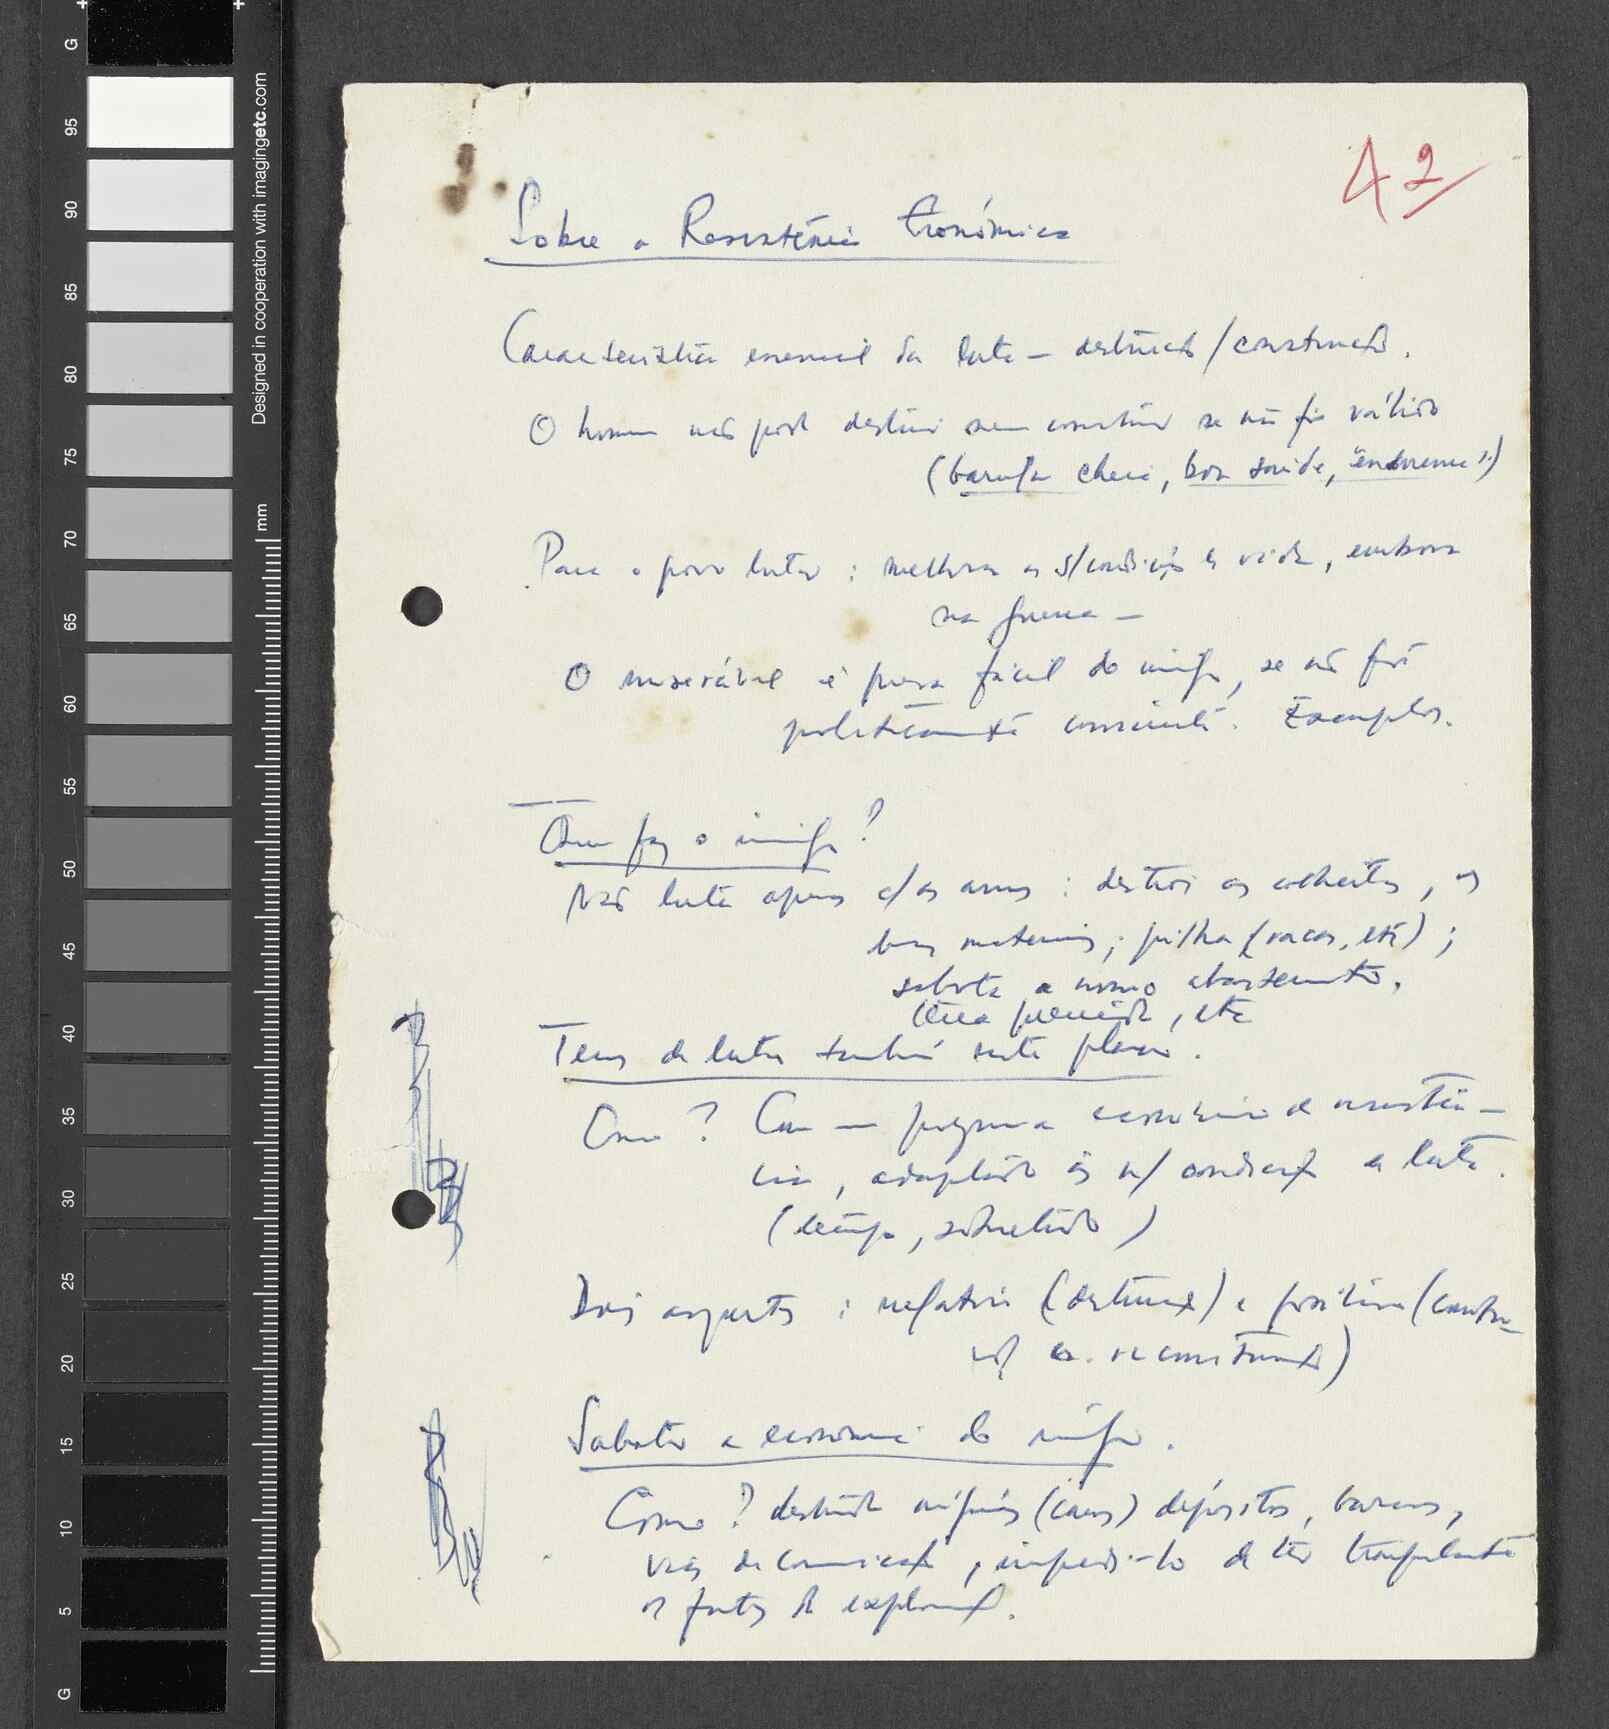 42
Sobre a Resistência Económica
Característica essencial da luta – destruição/construção.
O homem não pode destruir nem construir se não for válido
(barriga cheia, boa saúde, "endurence")
Para o povo lutar: melhorar as s/condições de vida, embora
na guerra –
O miserável é presa fácil do inimigo, se não for
politicamente consciente. Exemplos.
Como faz o inimigo?
Não luta apenas c/as armas: destroi as colheitas, os
bens materiais; pilha (vacas, etc);
sabota o nosso abastecimento,
terra queimada, etc
Temos de lutar também neste plano.
Como? Com um programa económico de resistên-
cia, adaptado às n/ condições de luta.
(tempo, sobretudo)
Dois aspectos: negativo (destruição) e positivo (constru-
ção e reconstrução)
Sabotar a economia do inimigo.
Como? destruindo máquinas (casas) depósitos, barcos,
vias de comunicação, impedi-lo de ter tranquilamente
os frutos da exploração.
Designed in cooperation with imagingetc.com
mm
G
95
90
85
80
75
70
65
60
55
50
45
40
35
30
25
20
15
10
5
G